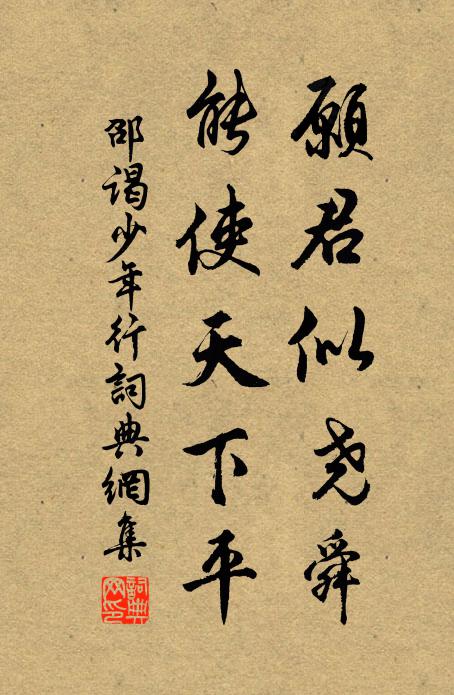 願君似尧舜
能使天下平
邵谒少年行詞典網集
詞典網印